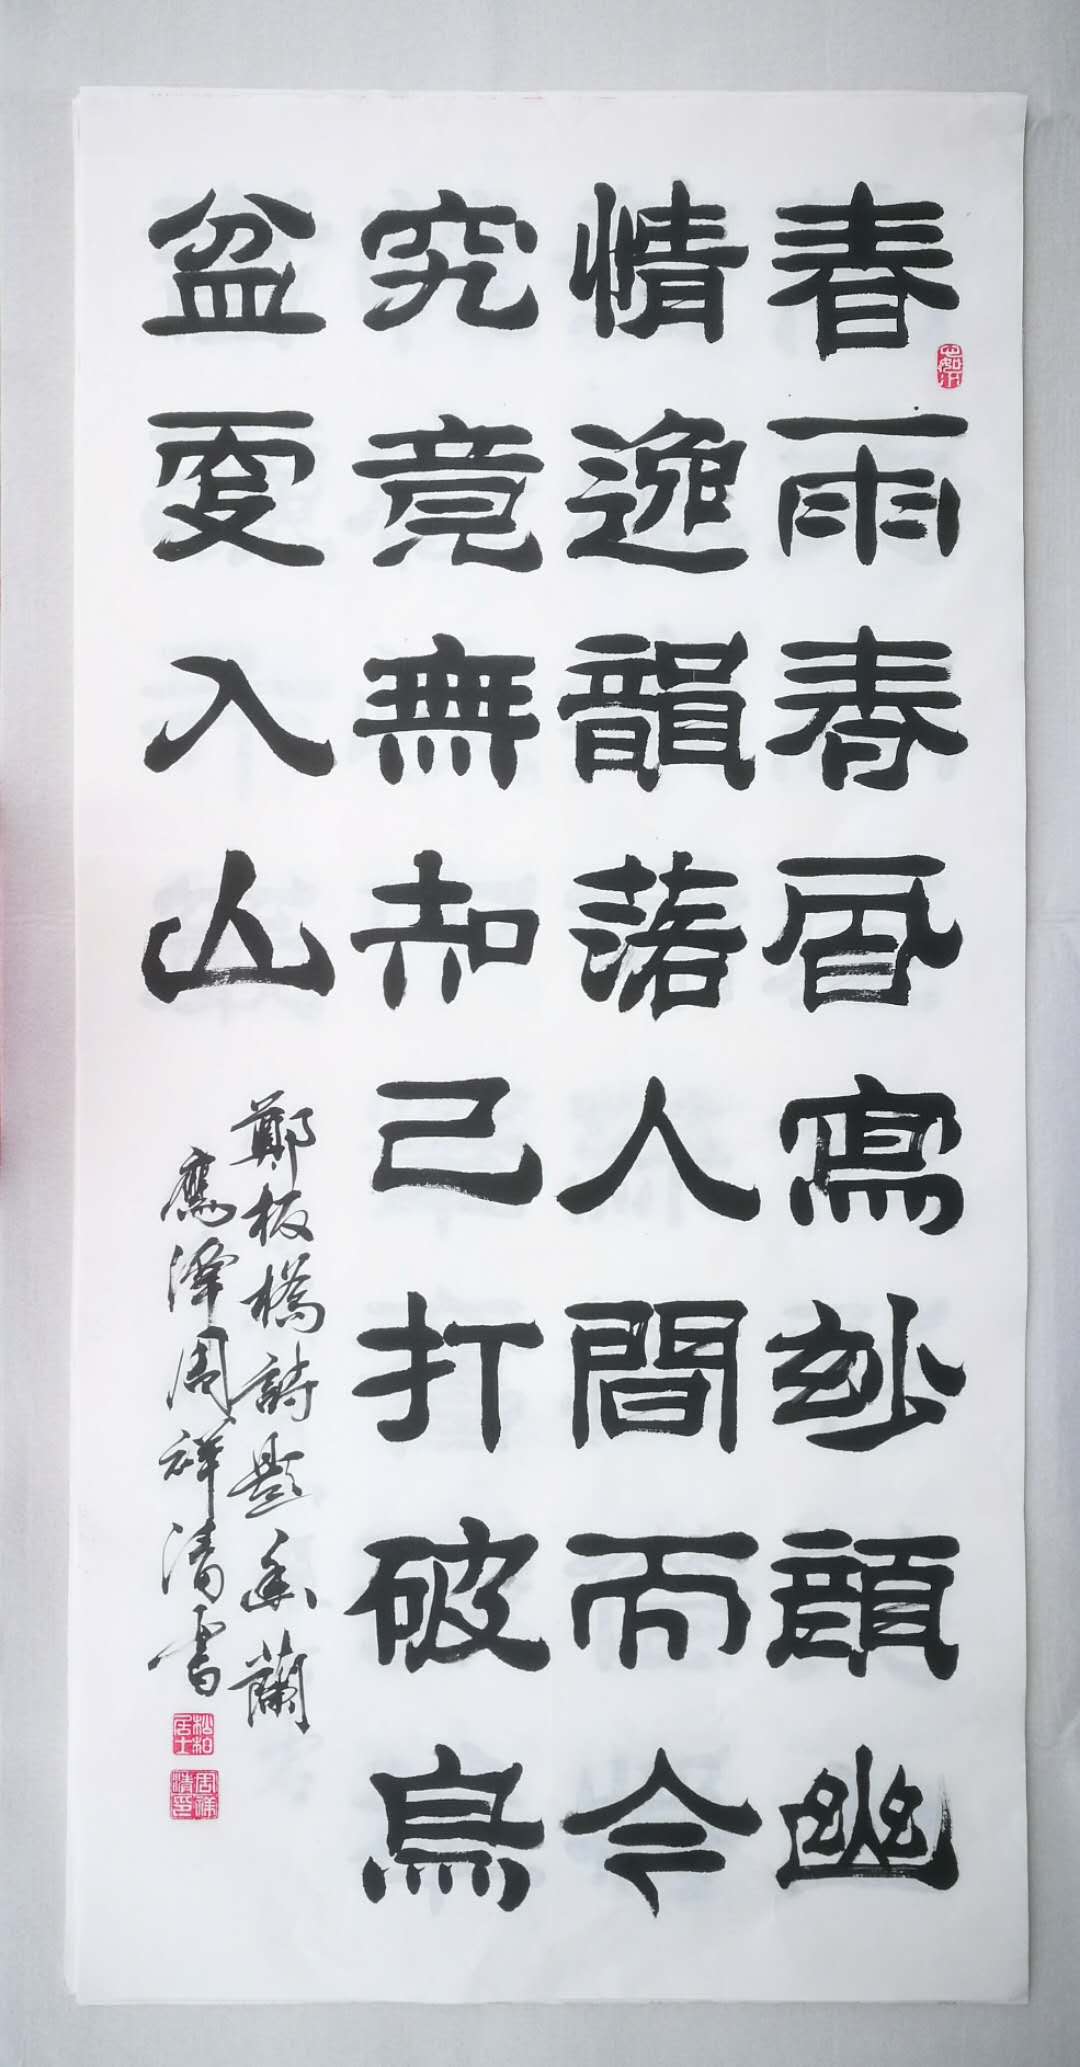 春雨春風寫妙顏幽
情逸韻落人間而今
究竟無知己打破烏
盆更入山
鄭板橋詩題幽蘭
應澤周祥清書
松柏居士
周祥清印